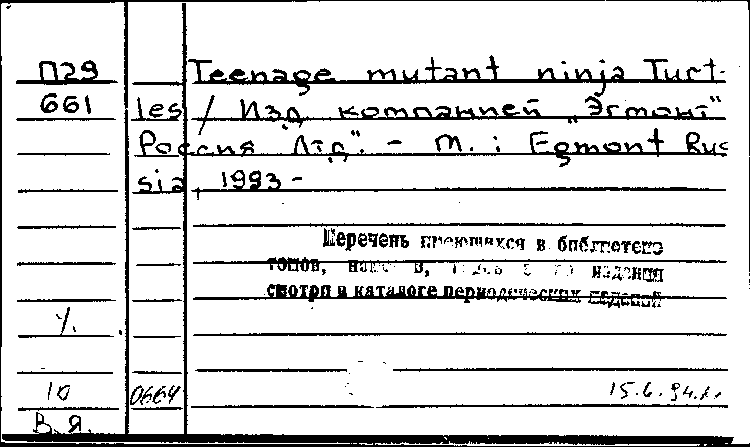 П29 Teenage mutant ninja Turt-
661 les / Изд. компанией „Эгмонт"
Россия Лтд". - М. : Egmont Rus
sia, 1993 -
Перечень имеющихся в библиотеке
томов, и издания
смотри в каталоге периодических изданий
10 0664 15.6.94г.
В. Я.